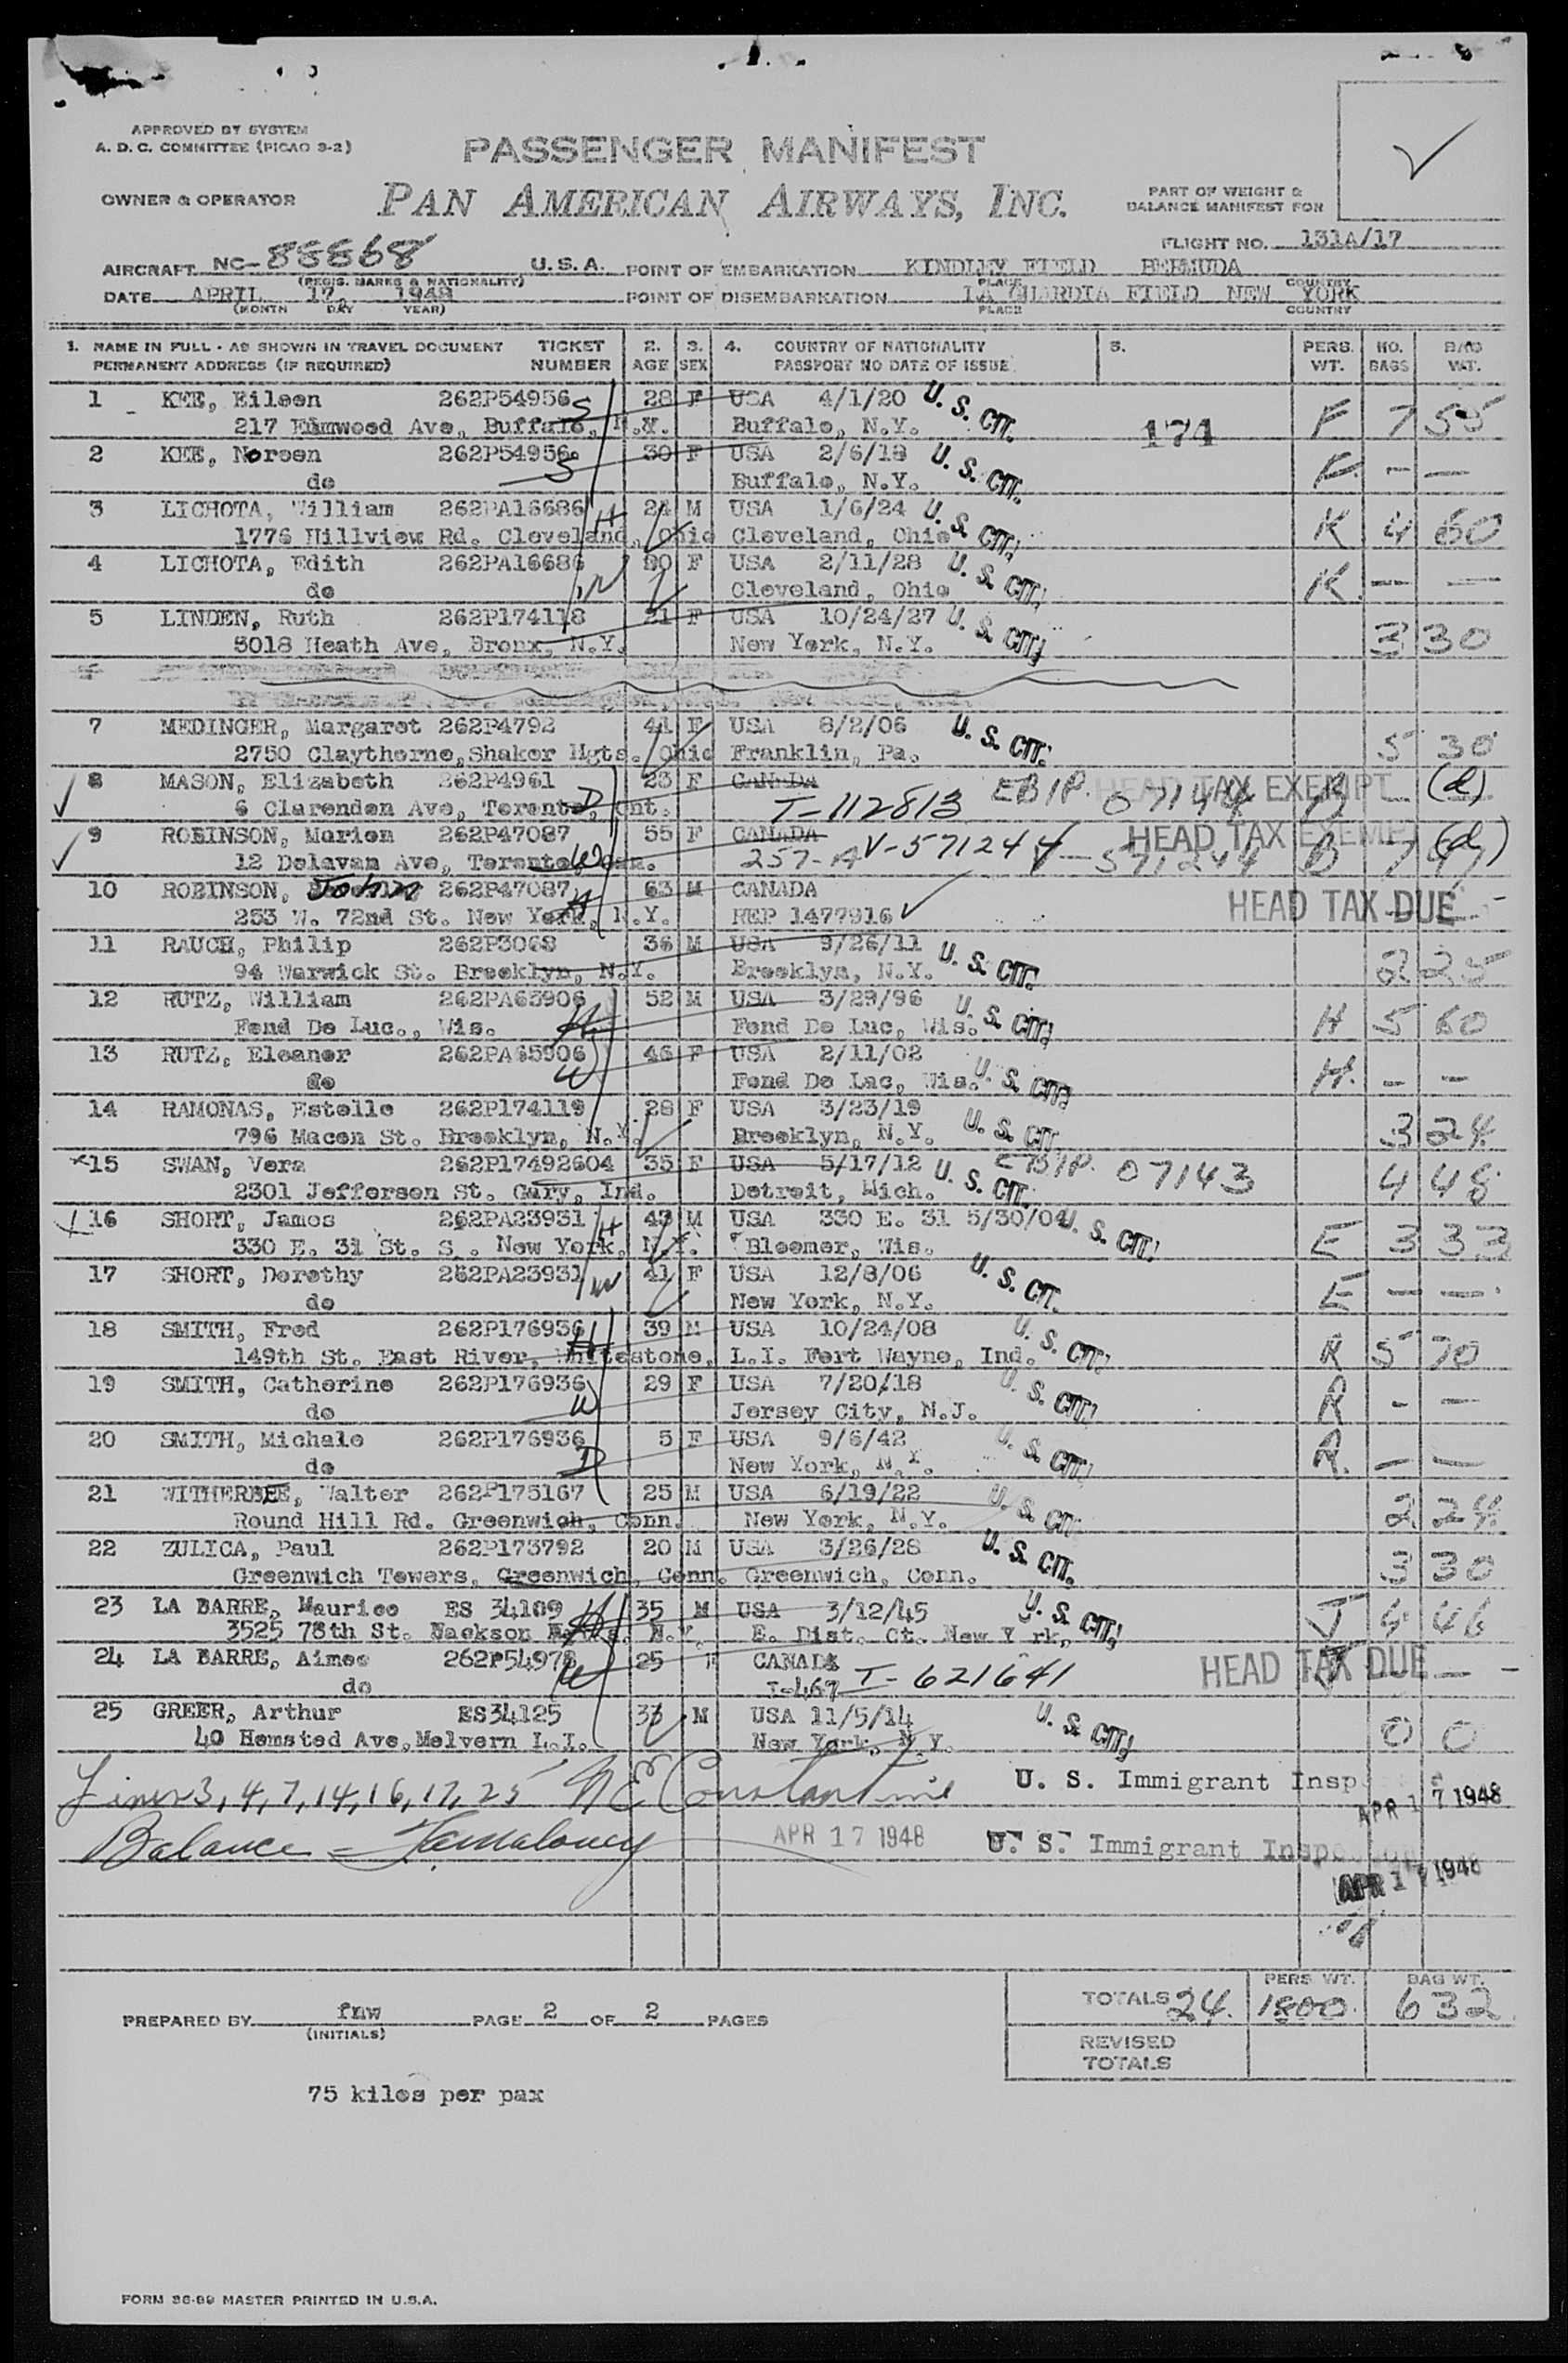 APPROVED BY SYSTEM
A. D. C. COMMITTEE (PICAO 3-2)
PASSENGER MANIFEST
OWNER & OPERATOR
PAN AMERICAN AIRWAYS, INC.
PART OF WEIGHT &
BALANCE MANIFEST FOR
FLIGHT NO. 131A/17
AIRCRAFT NC-88868 U.S.A. POINT OF EMBARKATION KINDLEY FIELD BERMUDA
(REGIS. MARKS & NATIONALITY) PLACE COUNTRY
DATE APRIL 17, 1948 POINT OF DISEMBARKATION LA GUARDIA FIELD NEW YORK
(MONTH DAY YEAR) PLACE COUNTRY
1. NAME IN FULL - AS SHOWN IN TRAVEL DOCUMENT TICKET 2. 3. 4. COUNTRY OF NATIONALITY 5. PERS. NO. BAG
PERMANENT ADDRESS (IF REQUIRED) NUMBER AGE SEX PASSPORT NO DATE OF ISSUE WT. BAGS WT.
1 KEE, Eileen 262P54956 S 28 F USA 4/1/20 U. S. CIT. 174 F 7 55
217 Elmwood Ave, Buffalo, N.Y. Buffalo, N.Y.
2 KEE, Noreen 262P54956 S 30 F USA 2/6/18 U. S. CIT. — —
do Buffalo, N.Y.
3 LICHOTA, William 262PA16686 H 24 M USA 1/6/24 U. S. CIT. K 4 60
1776 Hillview Rd. Cleveland, Ohio Cleveland, Ohio
4 LICHOTA, Edith 262PA16686 W 20 F USA 2/11/28 U. S. CIT. K. — —
do Cleveland, Ohio
5 LINDEN, Ruth 262P174118 21 F USA 10/24/27 U. S. CIT. 3 30
3018 Heath Ave, Bronx, N.Y. New York, N.Y.
7 MEDINGER, Margaret 262P4792 41 F USA 8/2/06 U. S. CIT. 5 30
2750 Claythorne, Shaker Hgts. Ohio Franklin, Pa.
8 MASON, Elizabeth 262P4961 23 F CANADA EBIP. 07144 HEAD TAX EXEMPT (d)
6 Clarendon Ave, Toronto, Ont. D T-112813
9 ROBINSON, Marion 262P47087 55 F CANADA HEAD TAX EXEMPT (d)
12 Delavan Ave, Toronto, Can. W 257-A V-571244 — 571244 B 7 47
10 ROBINSON, John 262P47087 H 63 M CANADA HEAD TAX DUE
253 W. 72nd St. New York, N.Y. REP 1477916
11 RAUCH, Philip 262P3068 36 M USA 9/26/11 U. S. CIT. 2 25
94 Warwick St. Brooklyn, N.Y. Brooklyn, N.Y.
12 RUTZ, William 262PA65906 H 52 M USA 3/29/96 U. S. CIT. H 5 60
Fond De Luc., Wis. Fond De Luc, Wis.
13 RUTZ, Eleanor 262PA65906 W 46 F USA 2/11/02 U. S. CIT. H. — —
do Fond De Lac, Wis.
14 RAMONAS, Estelle 262P174119 28 F USA 3/23/19 U. S. CIT. 3 24
796 Macon St. Brooklyn, N.Y. Brooklyn, N.Y.
15 SWAN, Vera 262P17492604 35 F USA 5/17/12 U. S. CIT. EBIP. 07143 4 48
2301 Jefferson St. Gary, Ind. Detroit, Mich.
16 SHORT, James 262PA23931 H 43 M USA 330 E. 31 5/30/04 U. S. CIT. E 3 33
330 E. 31 St. S . New York, N.Y. Bloomer, Wis.
17 SHORT, Dorothy 262PA23931 W 41 F USA 12/8/06 U. S. CIT. E — —
do New York, N.Y.
18 SMITH, Fred 262P176936 H 39 M USA 10/24/08 U. S. CIT. R 5 70
149th St. East River, Whitestone, L.I. Fort Wayne, Ind.
19 SMITH, Catherine 262P176936 W 29 F USA 7/20/18 U. S. CIT. R - -
do Jersey City, N.J.
20 SMITH, Michale 262P176936 D 5 F USA 9/6/42 U. S. CIT. R. — —
do New York, N.Y.
21 WITHERBEE, Walter 262P175167 25 M USA 6/19/22 U. S. CIT. 2 24
Round Hill Rd. Greenwich, Conn. New York, N.Y.
22 ZULICA, Paul 262P173792 20 M USA 3/26/28 U. S. CIT. 3 30
Greenwich Towers, Greenwich, Conn. Greenwich, Conn.
23 LA BARRE, Maurice ES 34189 H 35 M USA 3/12/45 U. S. CIT. J 4 46
3525 78th St. Jackson N.Y. E. Dist. Ct. New Y rk,
24 LA BARRE, Aimee 262P54978 W 25 CANADA HEAD TAX DUE — —
do T-467 T-621641
25 GREER, Arthur ES34125 33 M USA 11/5/14 U. S. CIT. 0 0
40 Hemsted Ave, Melvern L.I. New York, N.Y.
Lines 3, 4, 7, 14, 16, 17, 25 N E Constantine U. S. Immigrant Insp
APR 17 1948
Balance = APR 17 1948 U. S. Immigrant Inspector
APR 17 1948
TOTALS 24. PERS WT. 1800. BAG WT. 632
PREPARED BY fnw PAGE 2 OF 2 PAGES
(INITIALS)
REVISED
TOTALS
75 kilos per pax
FORM 36-89 MASTER PRINTED IN U.S.A.